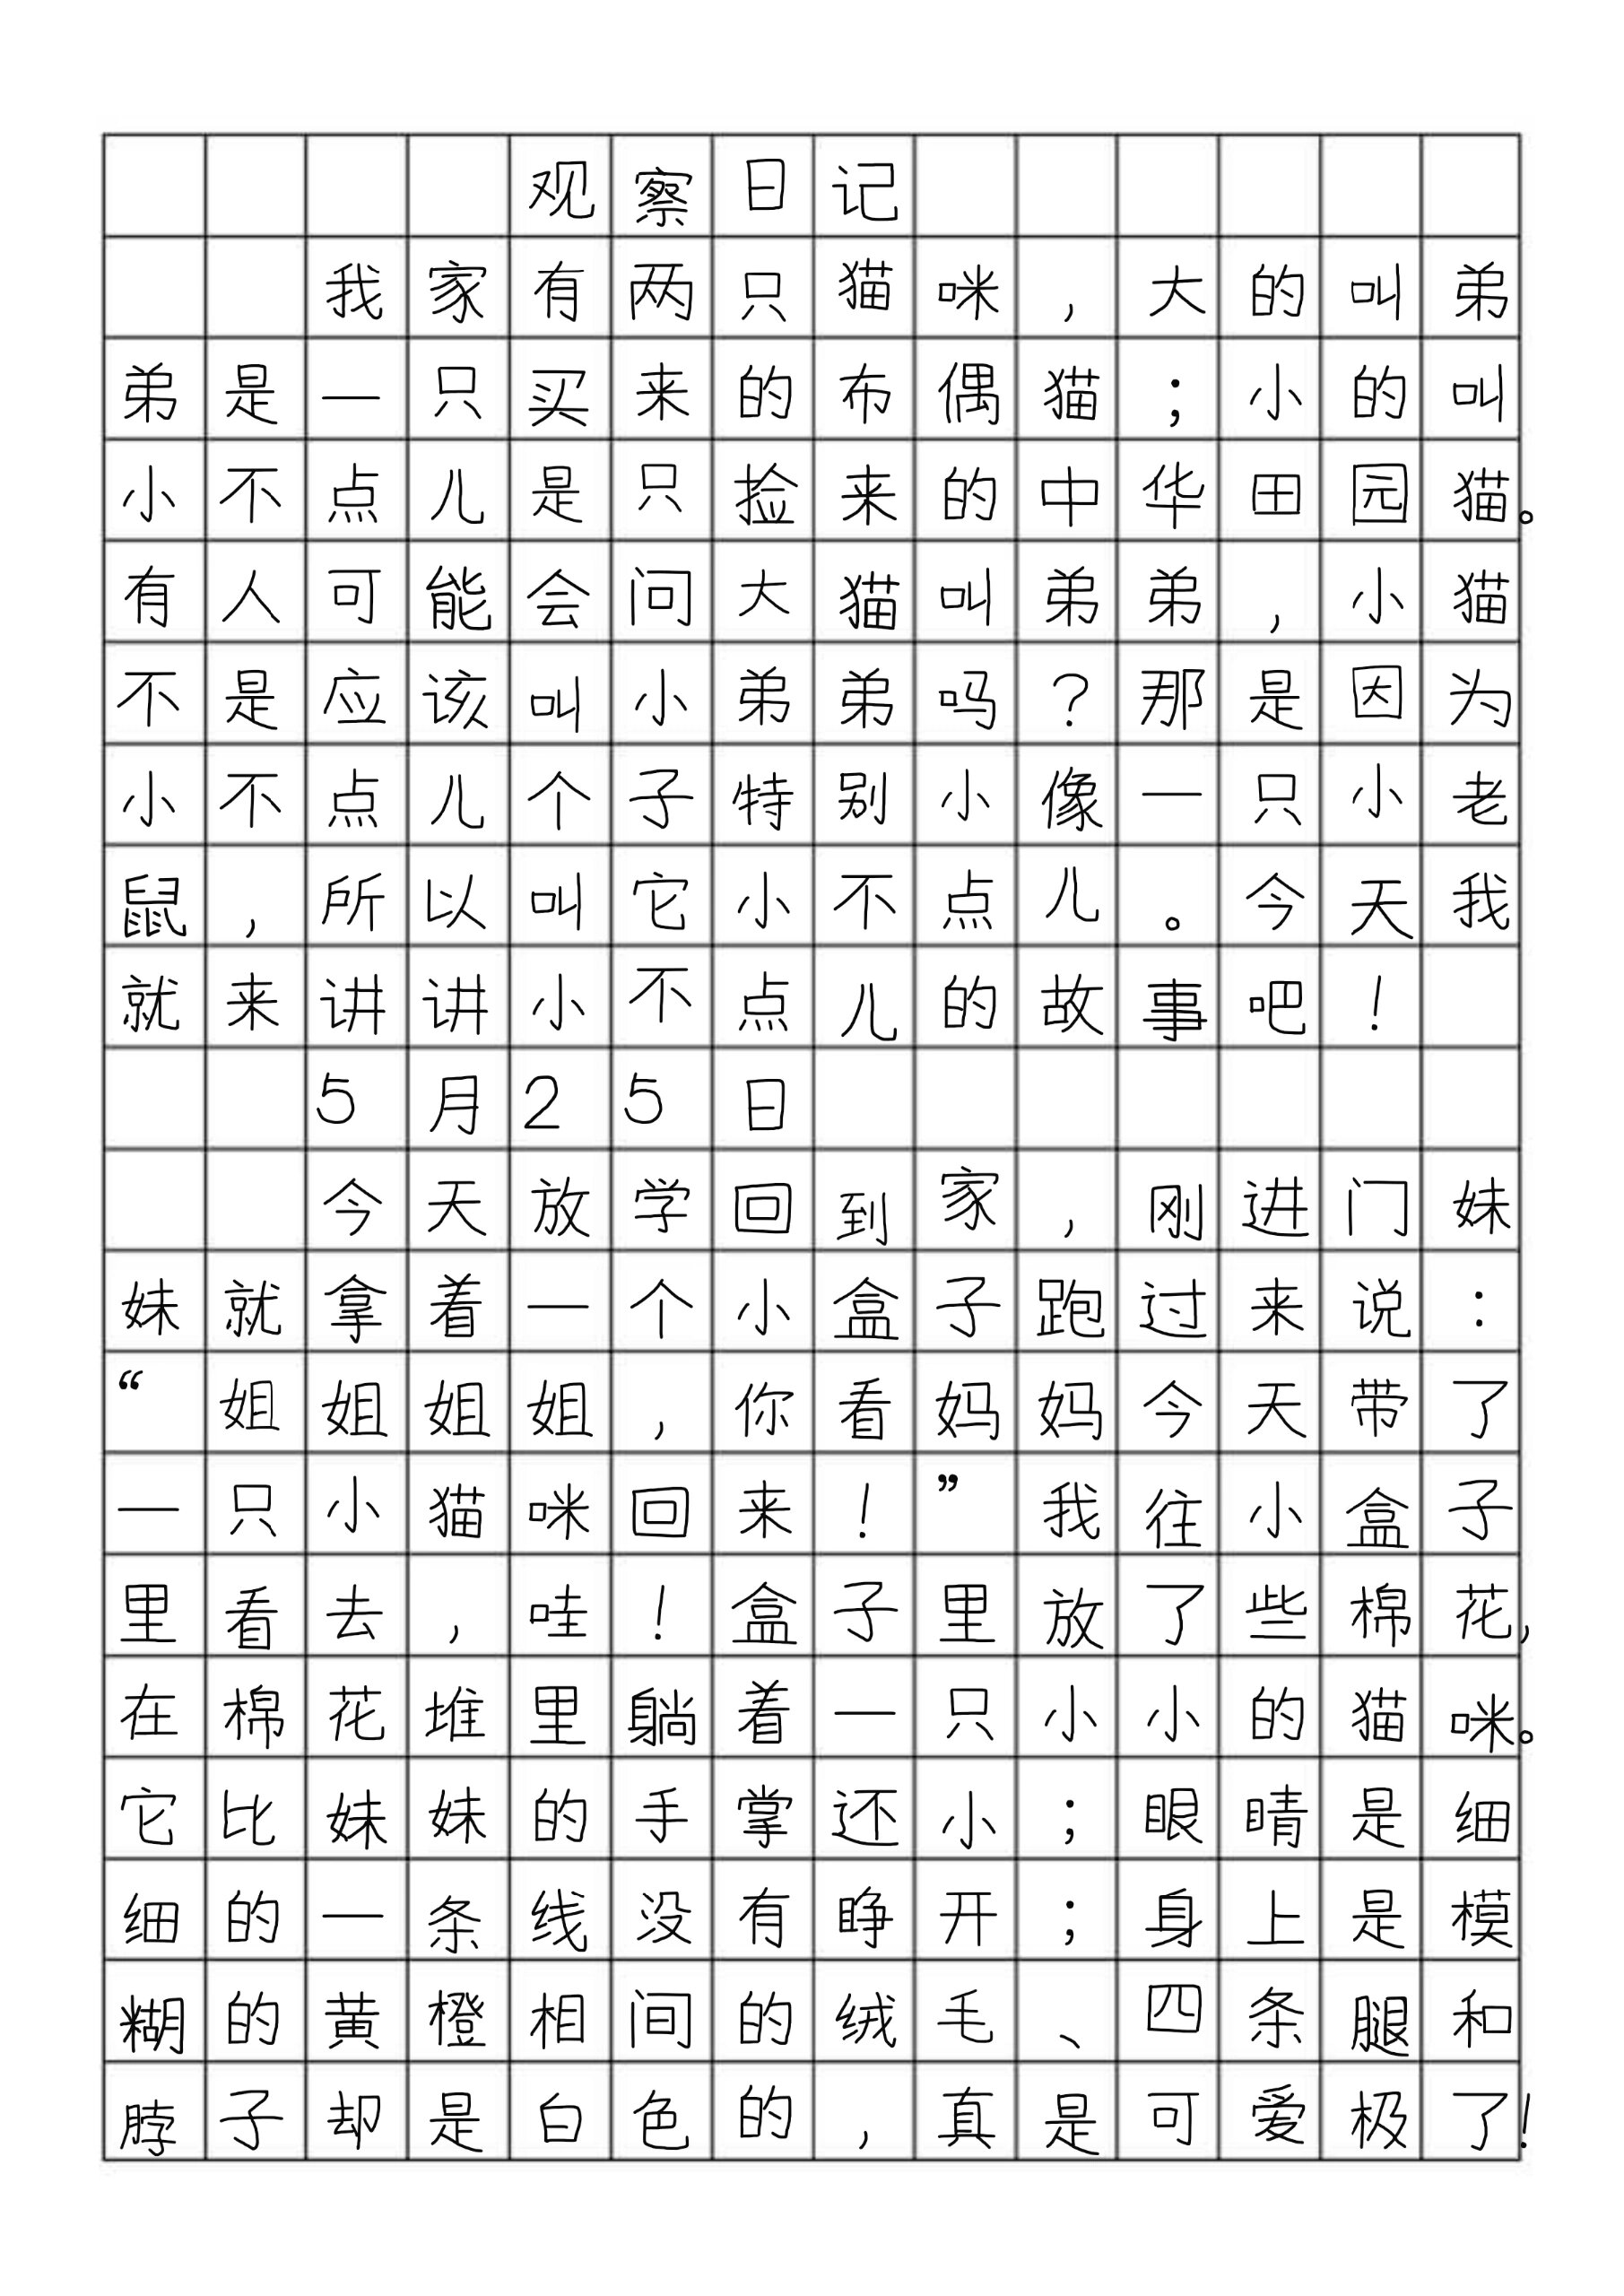 观察日记
我家有两只猫咪,大的叫弟
弟是一只买来的布偶猫;小的叫
小不点儿是只捡来的中华田园猫。
有人可能会问大猫叫弟弟,小猫
不是应该叫小弟弟吗?那是因为
小不点儿个子特别小像一只小老
鼠,所以叫它小不点儿。今天我
就来讲讲小不点儿的故事吧!
5月25日
今天放学回到家,刚进门妹
妹就拿着一个小盒子跑过来说:
“姐姐姐姐,你看妈妈今天带了
一只小猫咪回来!”我往小盒子
里看去,哇!盒子里放了些棉花,
在棉花堆里躺着一只小小的猫咪。
它比妹妹的手掌还小;眼睛是细
细的一条线没有睁开;身上是模
糊的黄橙相间的绒毛、四条腿和
脖子却是白色的,真是可爱极了!